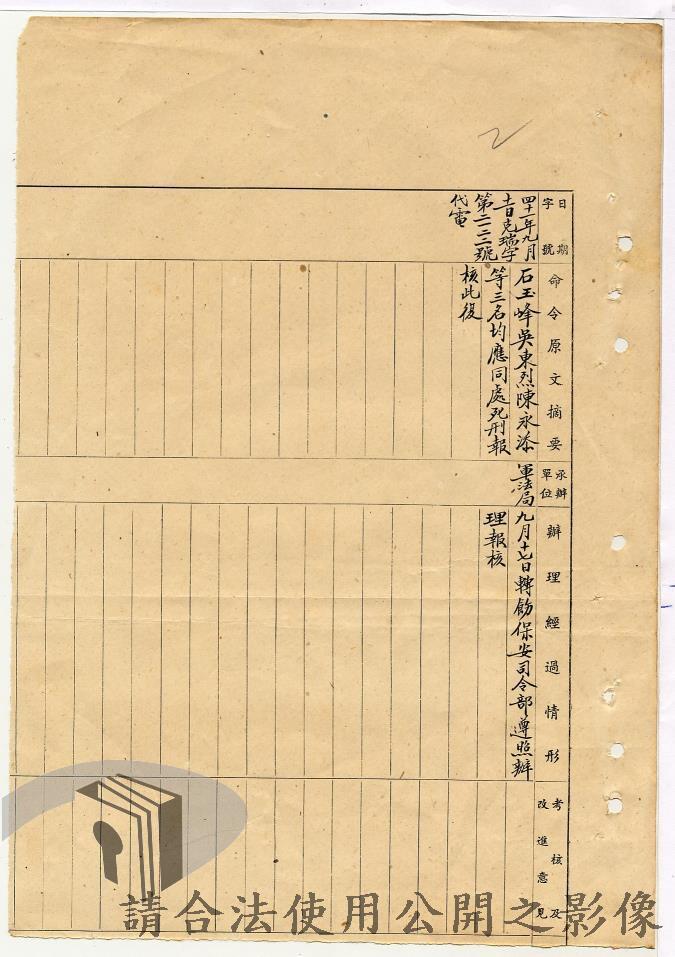 2
日期
字號
命令原文摘要
承辦
單位
辦理經過情形
考核及
改進意見
四十一年九月
十日克瑞字
第二二二號
代電
石玉峰吳東烈陳永添
等三名均應同處死刑報
核此復
軍法局
九月十七日轉飭保安司令部遵照辦
理報核
請合法使用公開之影像